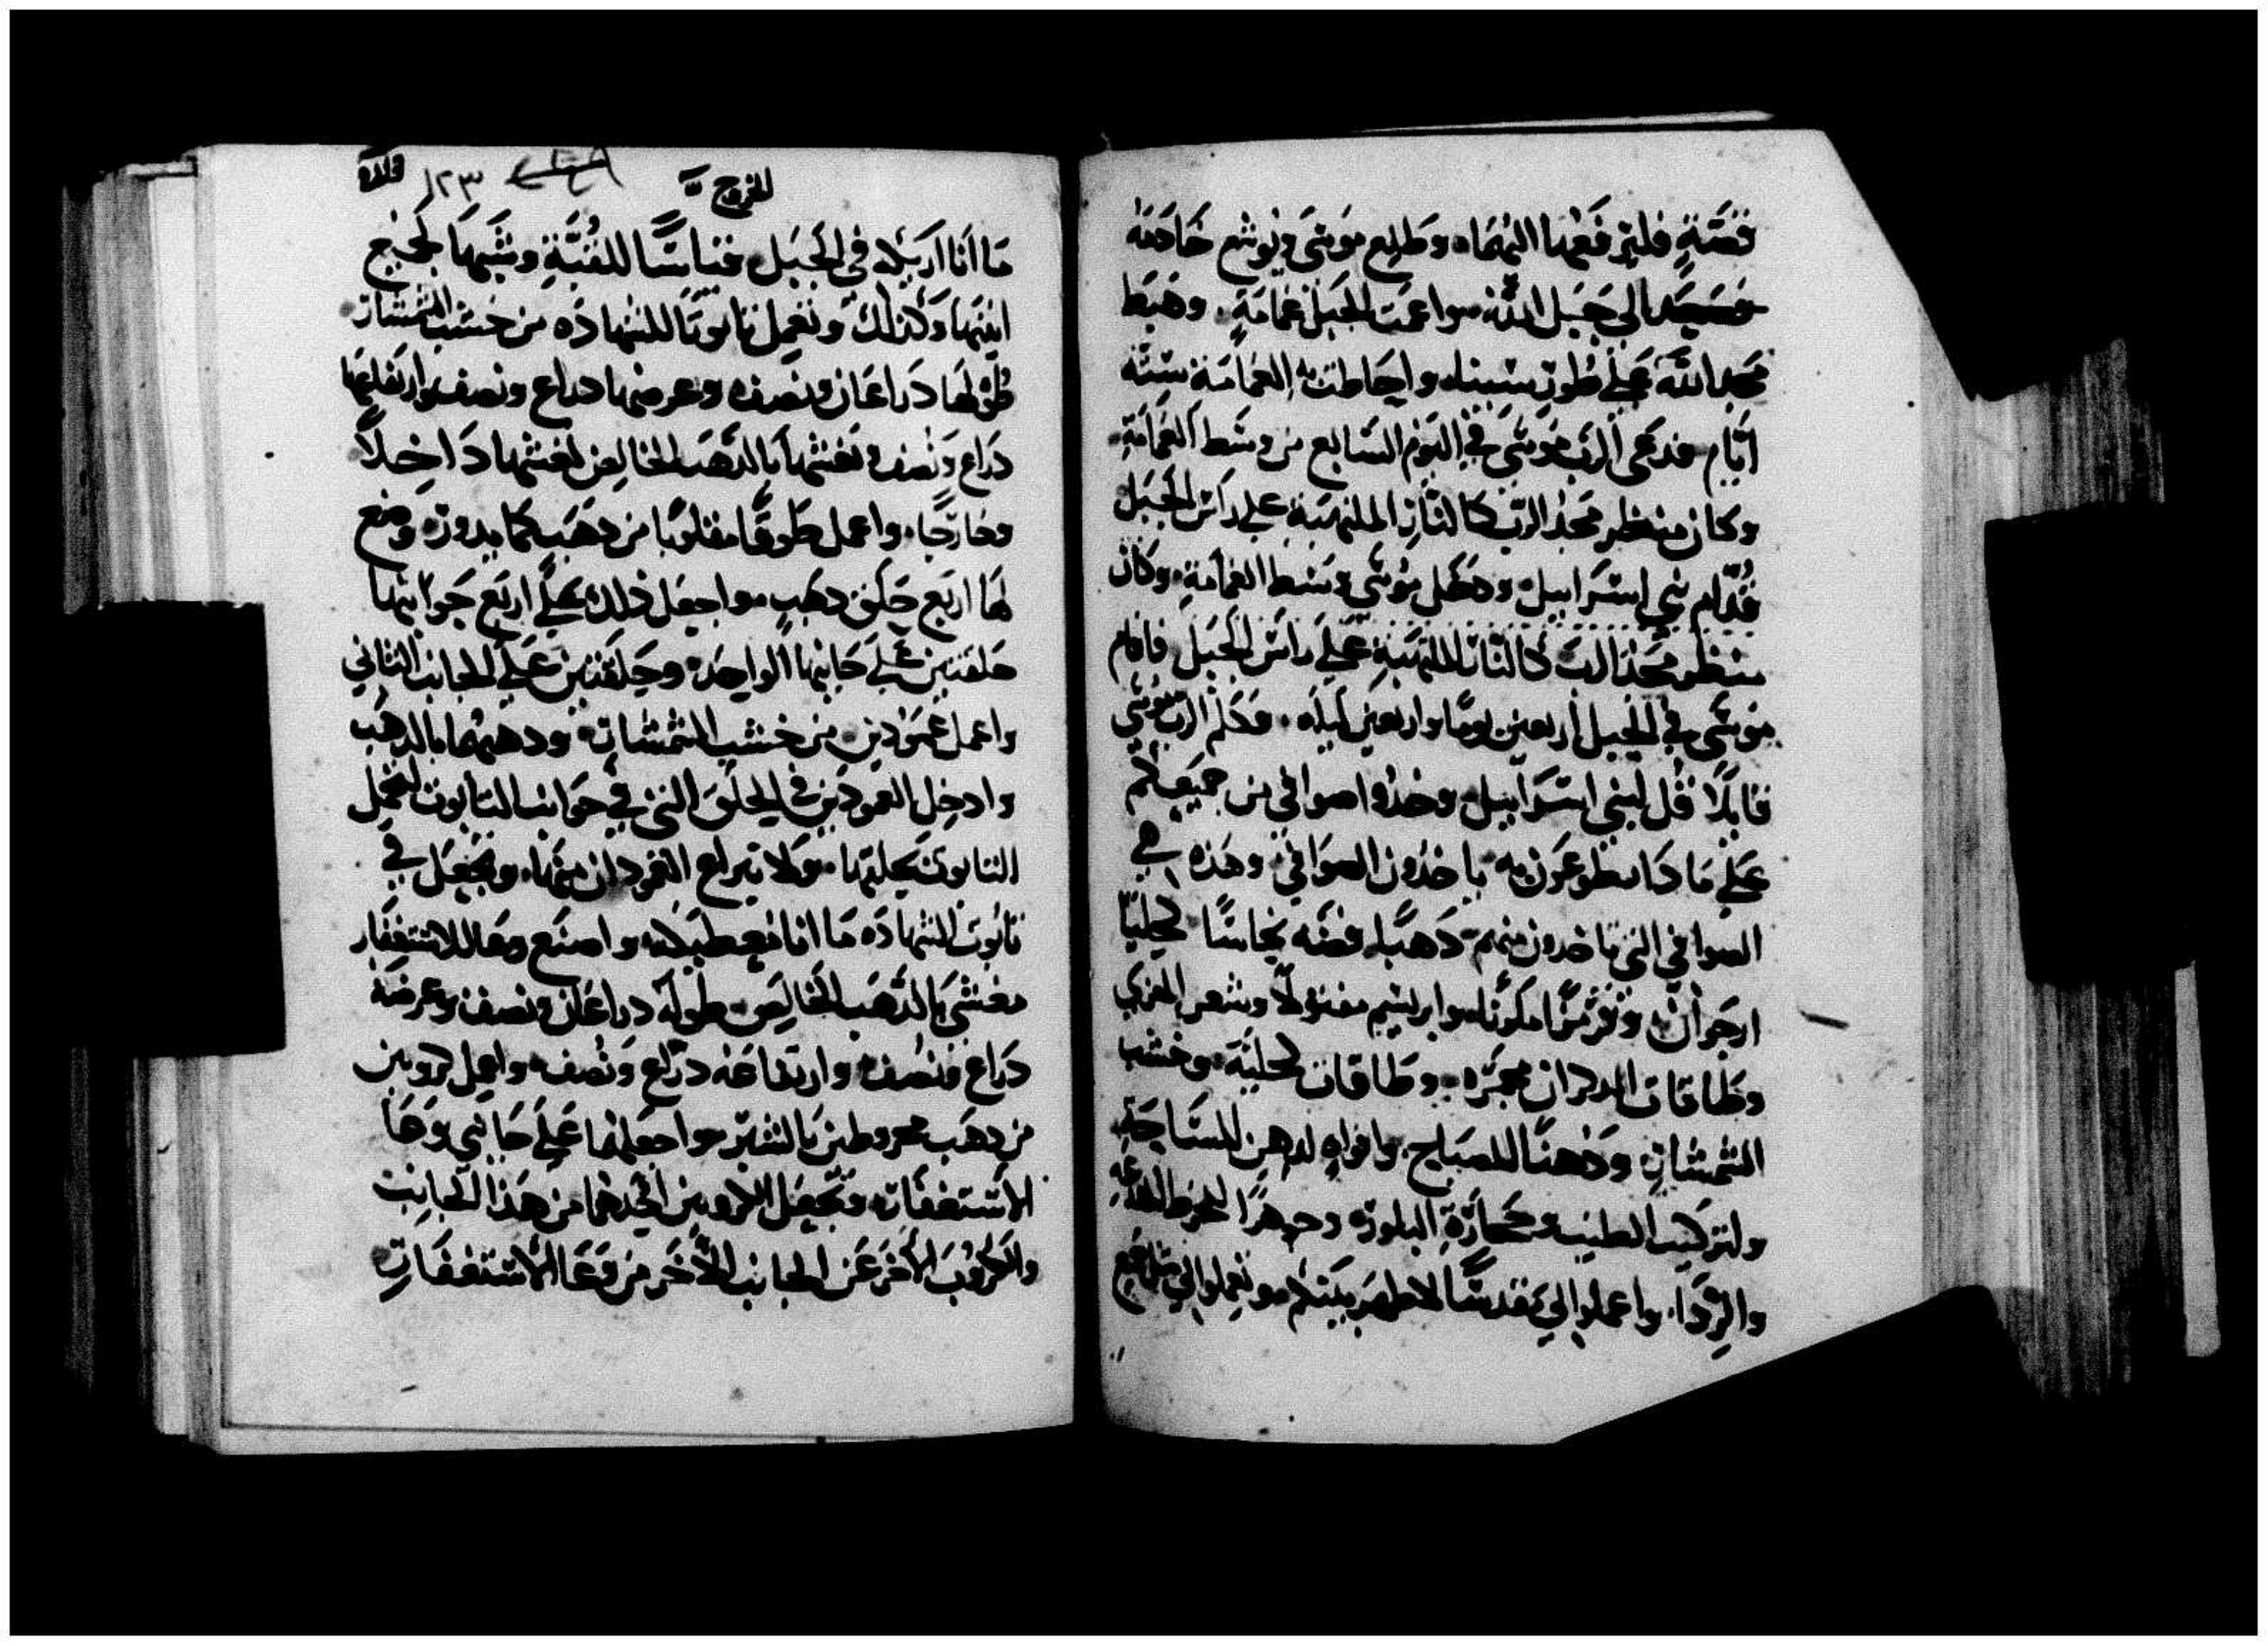 قصةٍ فليتر فعهما اليهما. وطلع موسَى ويوشع خادمه
وصَعِدَا الي جَبَل الله. واعمت الجَبل غمامَةٍ. وهَبَط
مَجد الله عَلي طُور سينا. واحاطت به الغمامَة ستّة
ايَّام. فدعَى الرب مُوسَى في اليَوم السَابع من وسَط الغمَامَة.
وكان منظر مَجد الرّب كالنّار الملتهبَة علي رَاس الجَبل
قُدّام بني اسرَاييل. ودخَل مُوسَي وسَط الغمامَة. وكان
منظر مَجد الرب كالنّار الملتهبَة عَلي راس الجَبَل فاقام
موسَى في الجَبل اربعين يومًا واربعين ليله. فكلم الرب موسَي
قايلًا قُل لبني اسرَاييل. وخذُوا صوافي من جميعكم
عَلي مَا طوعون به ياخذون الصوَافي. وهَذه هي
الصوافي التي تاخدون منهم. دَهبًا. فضَه نحاسًا كحليًا
ارجَوان. وقرمزًا مكررًا. وابريسم مفتولًا وشعر المعزي
وطاقات الدكران محمَّره. وطَاقات كحليَّة. وخشب
الشمشار. ودُهنًا للمصباح. وافواهٍ لدهن المسَاحَة.
ولتركيب الطيب. وحجارَة البلوره. وجوهرًا لخرط
والرِّدَا. واعملوا الي مَقدسًا لاظهر بينكم. وتعملوا الي مثل جَميع
الخروج
١٢٣
مَا انَا اريكه في الجَبَل. قياسًا للقُبَّةِ وشبهَهَا لجميع
انيتهَا. وكذلك وتعمل تابوتًا للشهَادَه من خشب الشمشار
طُولهَا دَراعَان ونصف. وعرضهَا دراع ونصف. وارتفاعهَا
دَراع وَنُصف. تغشيهَا بالدَّهَب الخالص تغشيهَا دَاخلًا
وخارجًا. واعمل طَوقًا مفلوبًا من دهَب كما يدوره. وضع
لهَا اربَع حَلَق دهَبٍ. واجعَل ذلك عَلَي اربَع جَوانبهَا
حلقتين عَلَي جَانبهَا الواحِد. وحَلقتَين عَلي الجانب الثاني
واعمل عَمُودين من خشب الشمشار. ودهبهمَا بالدهَب
وادخِل العمودَين في الحلَق التي في جوَانب التابوت لتحمل
التابوت بحليتها. ولا تبراح العمودان منهَا. وتجعَل في
تابُوت الشهادَه مَا انا معطيكه. واصنَع وعَا للاستغفار
مغشَّي بالدّهَب الخالِص. طولَه دراعَان ونصف. وعرضَه
دَراع ونصُف. وارتفاعَه دراع وَنُصف. واعمل كروبين
من دهَب مخروطين بالتبر. واجعلهما عَلي جَانبي وعَا
الاستغفار. وتجعَل الكروبين احدهمَا من هَذا الجانب
والكرُوب الاخَر عَن الجانب الآخَر من وعَا الاستغفار